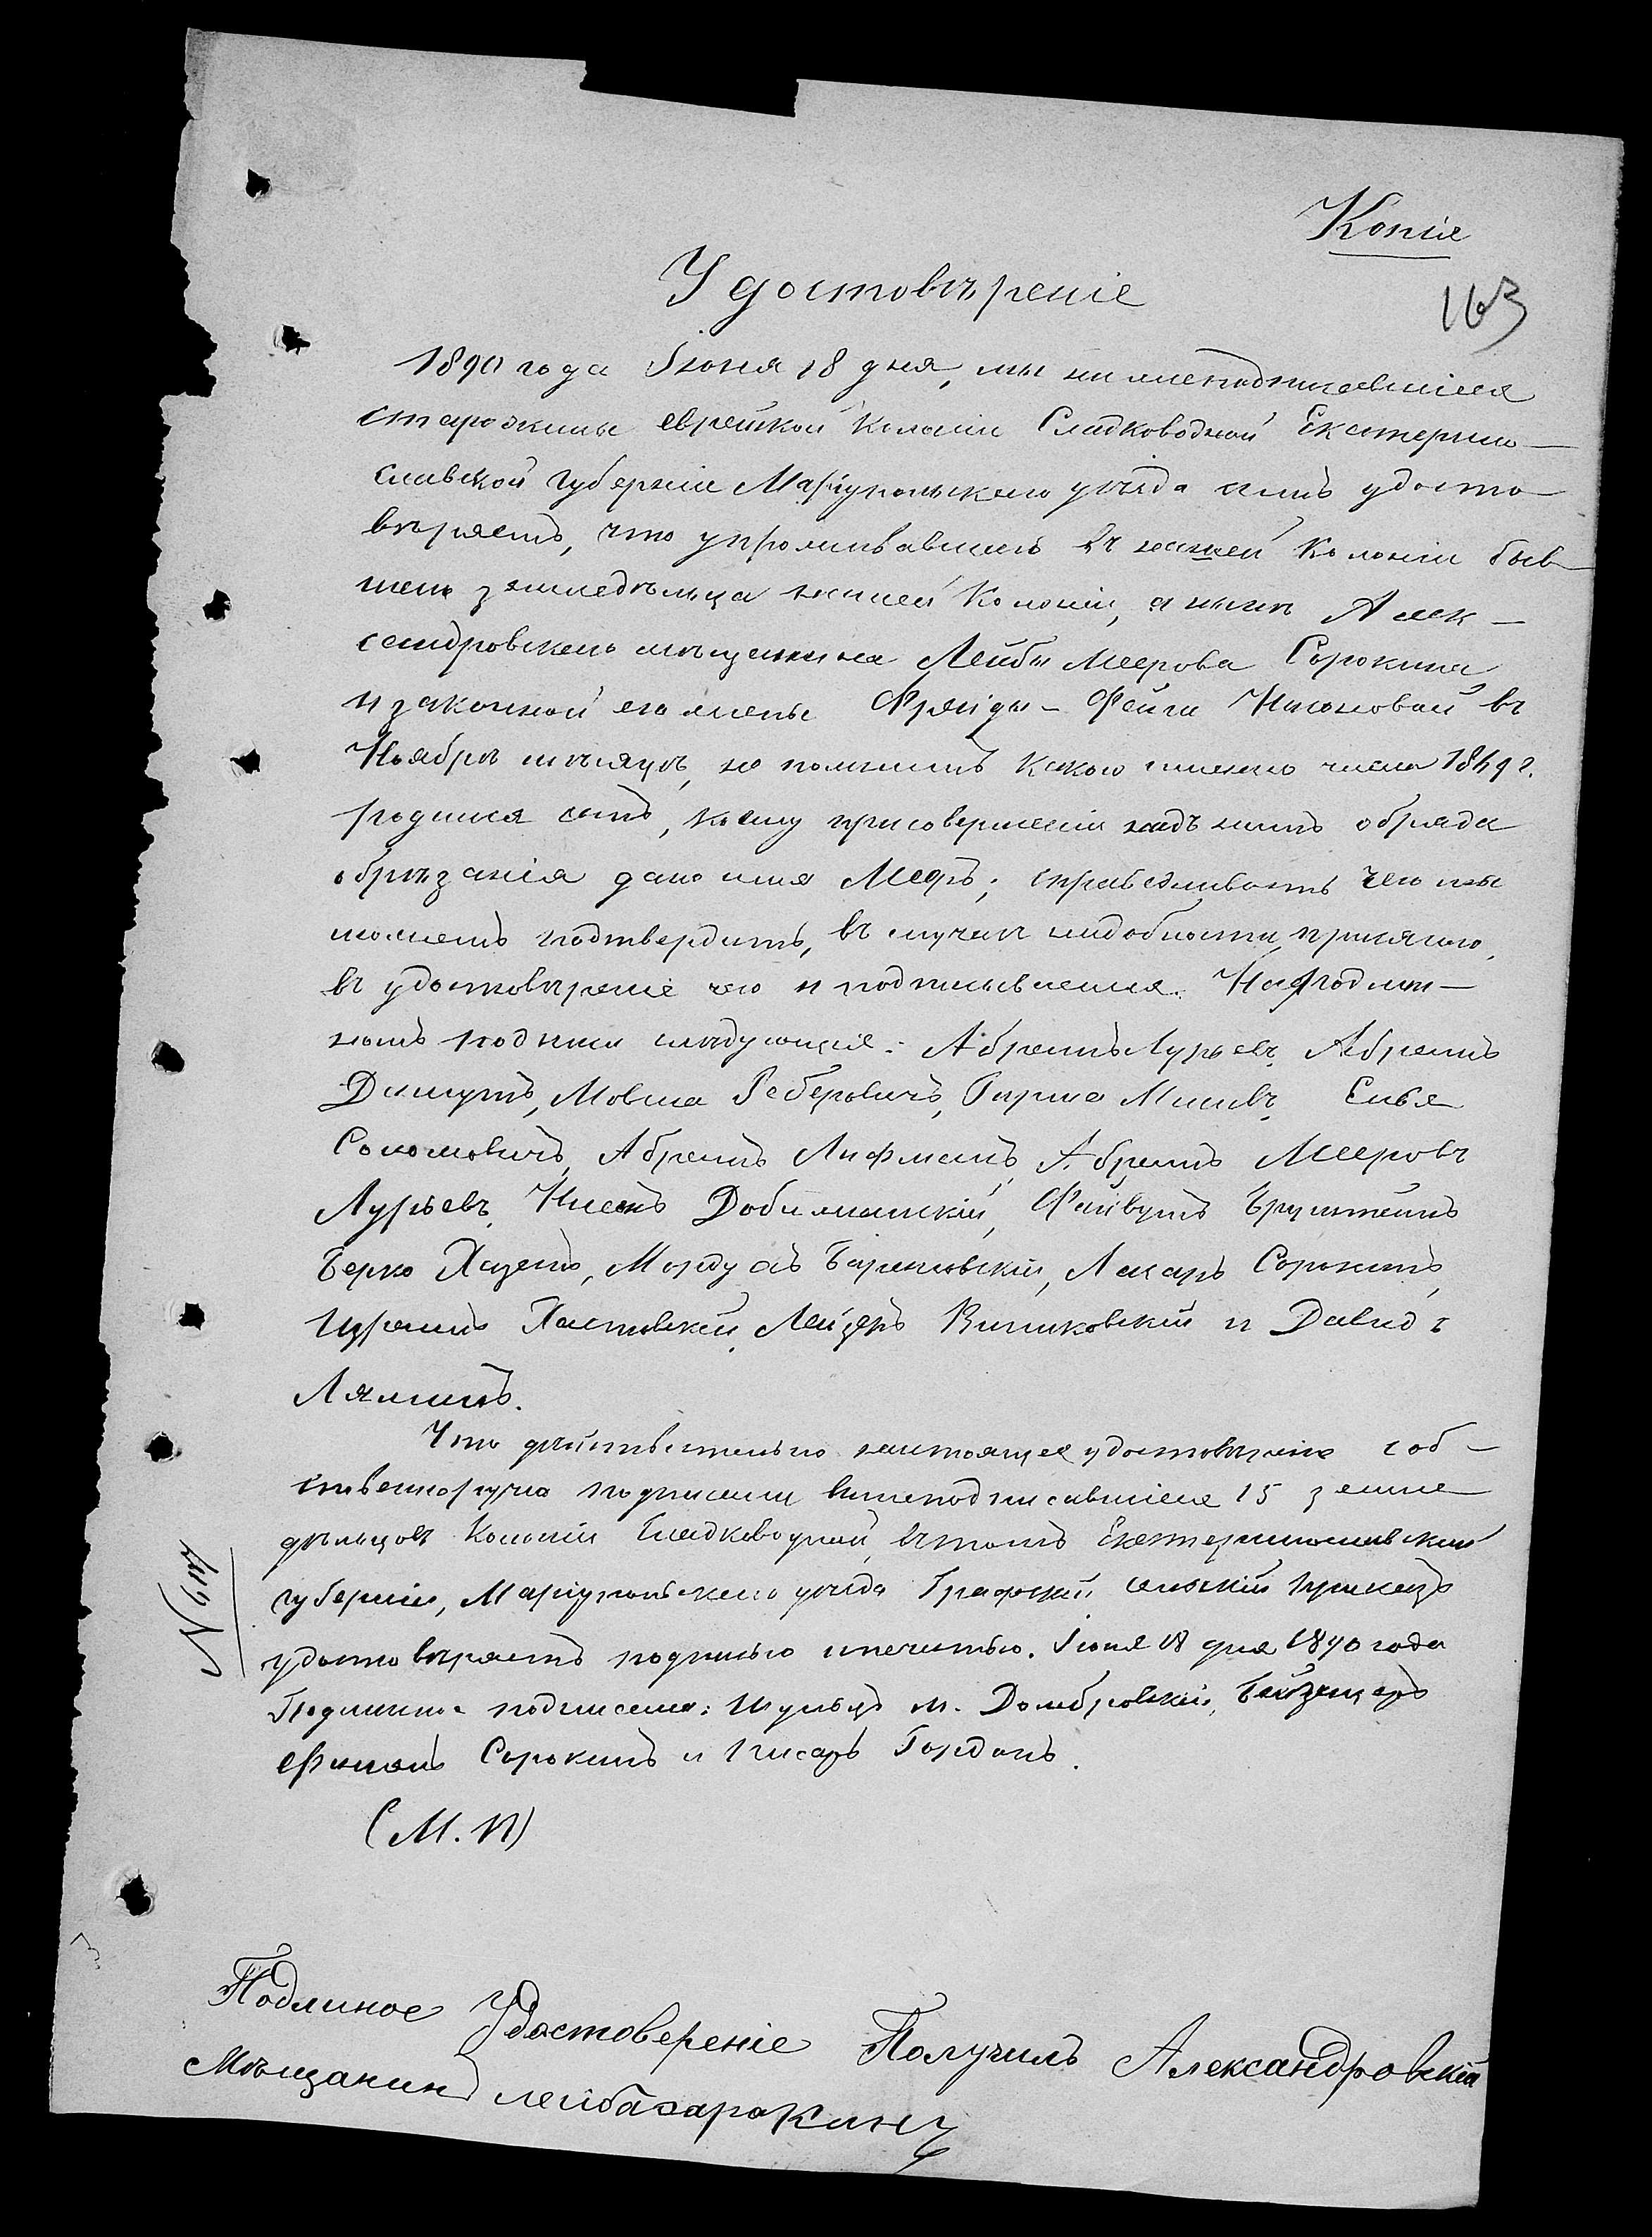 Копія
163
Удостовѣреніе
1890 года Іюня 18 дня, мы нижеподписавшіеся
старожилы еврейской Колоніи Сладководной Екатерино-
славской губерніи Маріупольскаго уѣзда симъ удосто-
вѣряемъ, что у проживавшаго въ нашей Колоніи быв-
шего земледѣльца нашей Колоніи, а нынѣ Алек-
сандровскаго мѣщанина Лейбы Меерова Сорокина
и законной его жены Фрейды-Фейги въ
Ноябрѣ мѣсяцѣ, не помнимъ какого именно числа 1869 г.
родился сынъ, коему при совершеніи надъ нимъ обряда
обрѣзанія дано имя Мееръ; справедливость чего мы
можемъ подтвердить, въ случаѣ надобности, присягою,
въ удостовѣреніе чего и подписываемся. На подлин-
номъ подписи слѣдующіе: Абрамъ Лурьевъ, Абрамъ
Мовша Гирша Елья
Соломовичъ, Абрамъ Лифманъ, Абрамъ Мееровъ
Лурьевъ, Файвушъ Брунштейнъ
Берко Хацетъ, Мордухъ Лазарь Сорокинъ,
Израиль Лейзеръ Виниковскій и Давидъ
Ляминъ.
Что дѣйствительно настоящее удостовѣреніе соб-
ственноручно подписали вышеподписавшіеся 15 земле-
дѣльцовъ Колоніи Сладководной, въ томъ Екатеринославской
губерніи, Маріупольскаго уѣзда Графскій сельскій приказъ
удостовѣряетъ подписью и печатью. Іюня 18 дня 1890 года
Подлинное подписали: Шульцъ М. Домбровскій, Бейзицеръ
Сорокинъ и писарь Гордонъ.
(М.П)
№
Подлиное Удостовереніе Получилъ Александровскій
Мѣщанинъ лейба сарокинъ